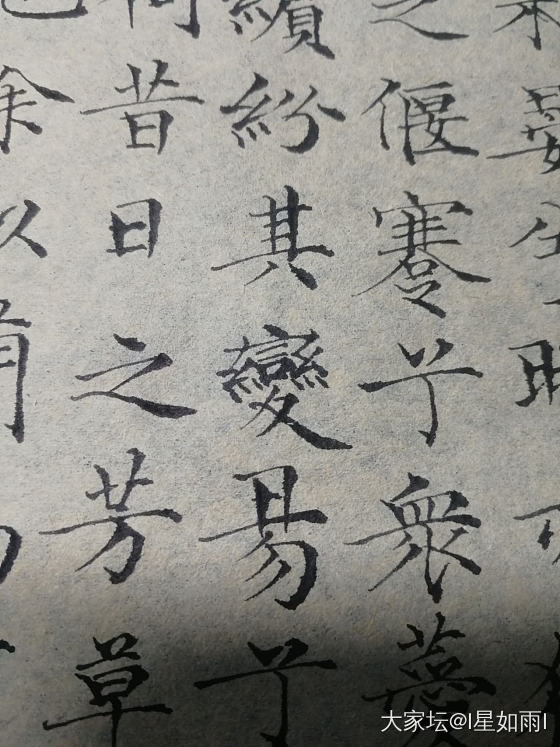 之偃蹇兮眾薆
繽紛其變易兮
何昔日之芳草
余以
大家坛@I星如雨I